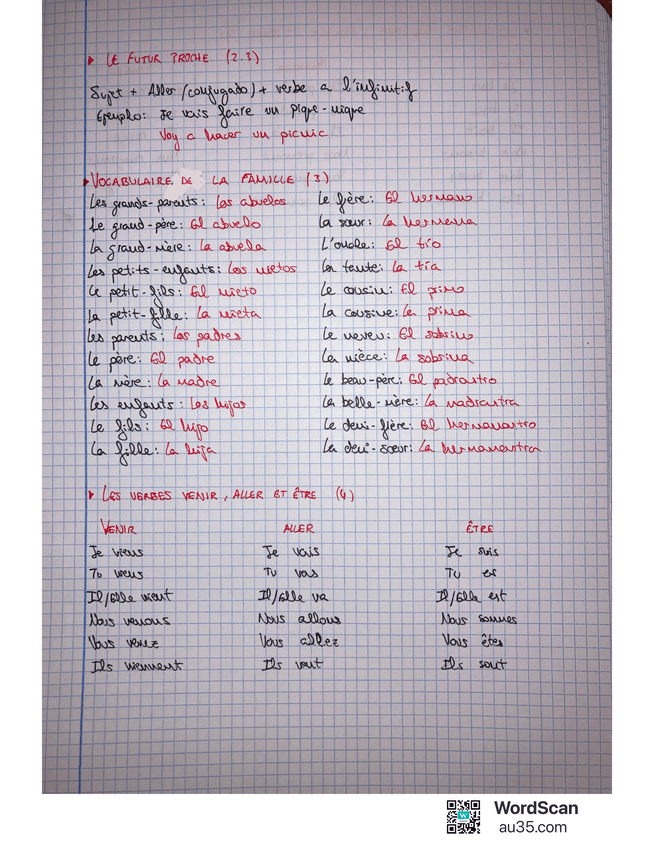 ▸ LE FUTUR PROCHE (2.3)
Sujet + Aller (conjugado) + verbe a l'infinitif
Ejemplo: Je vais faire un pique-nique
Voy a hacer un picnic
▸ VOCABULAIRE DE LA FAMILLE (3)
Les grands-parents: Los abuelos Le frère: El hermano
Le grand-père: El abuelo La sœur: La hermana
La grand-mère: La abuela L'oncle: El tío
Les petits-enfants: Los nietos La tante: La tía
Le petit-fils: El nieto Le cousin: El primo
La petit-fille: La nieta La cousine: La prima
Les parents: Los padres Le neveu: El sobrino
Le père: El padre La nièce: La sobrina
La mère: La madre Le beau-père: El padrastro
Les enfants: Los hijos La belle-mère: La madrastra
Le fils: El hijo Le demi-frère: El hermanastro
La fille: La hija La demi-sœur: La hermanastra
▸ LES VERBES VENIR, ALLER ET ÊTRE (4)
VENIR ALLER ÊTRE
Je viens Je vais Je suis
Tu viens Tu vas Tu es
Il/Elle vient Il/Elle va Il/Elle est
Nous venons Nous allons Nous sommes
Vous venez Vous allez Vous êtes
Ils viennent Ils vont Ils sont
WordScan
au35.com